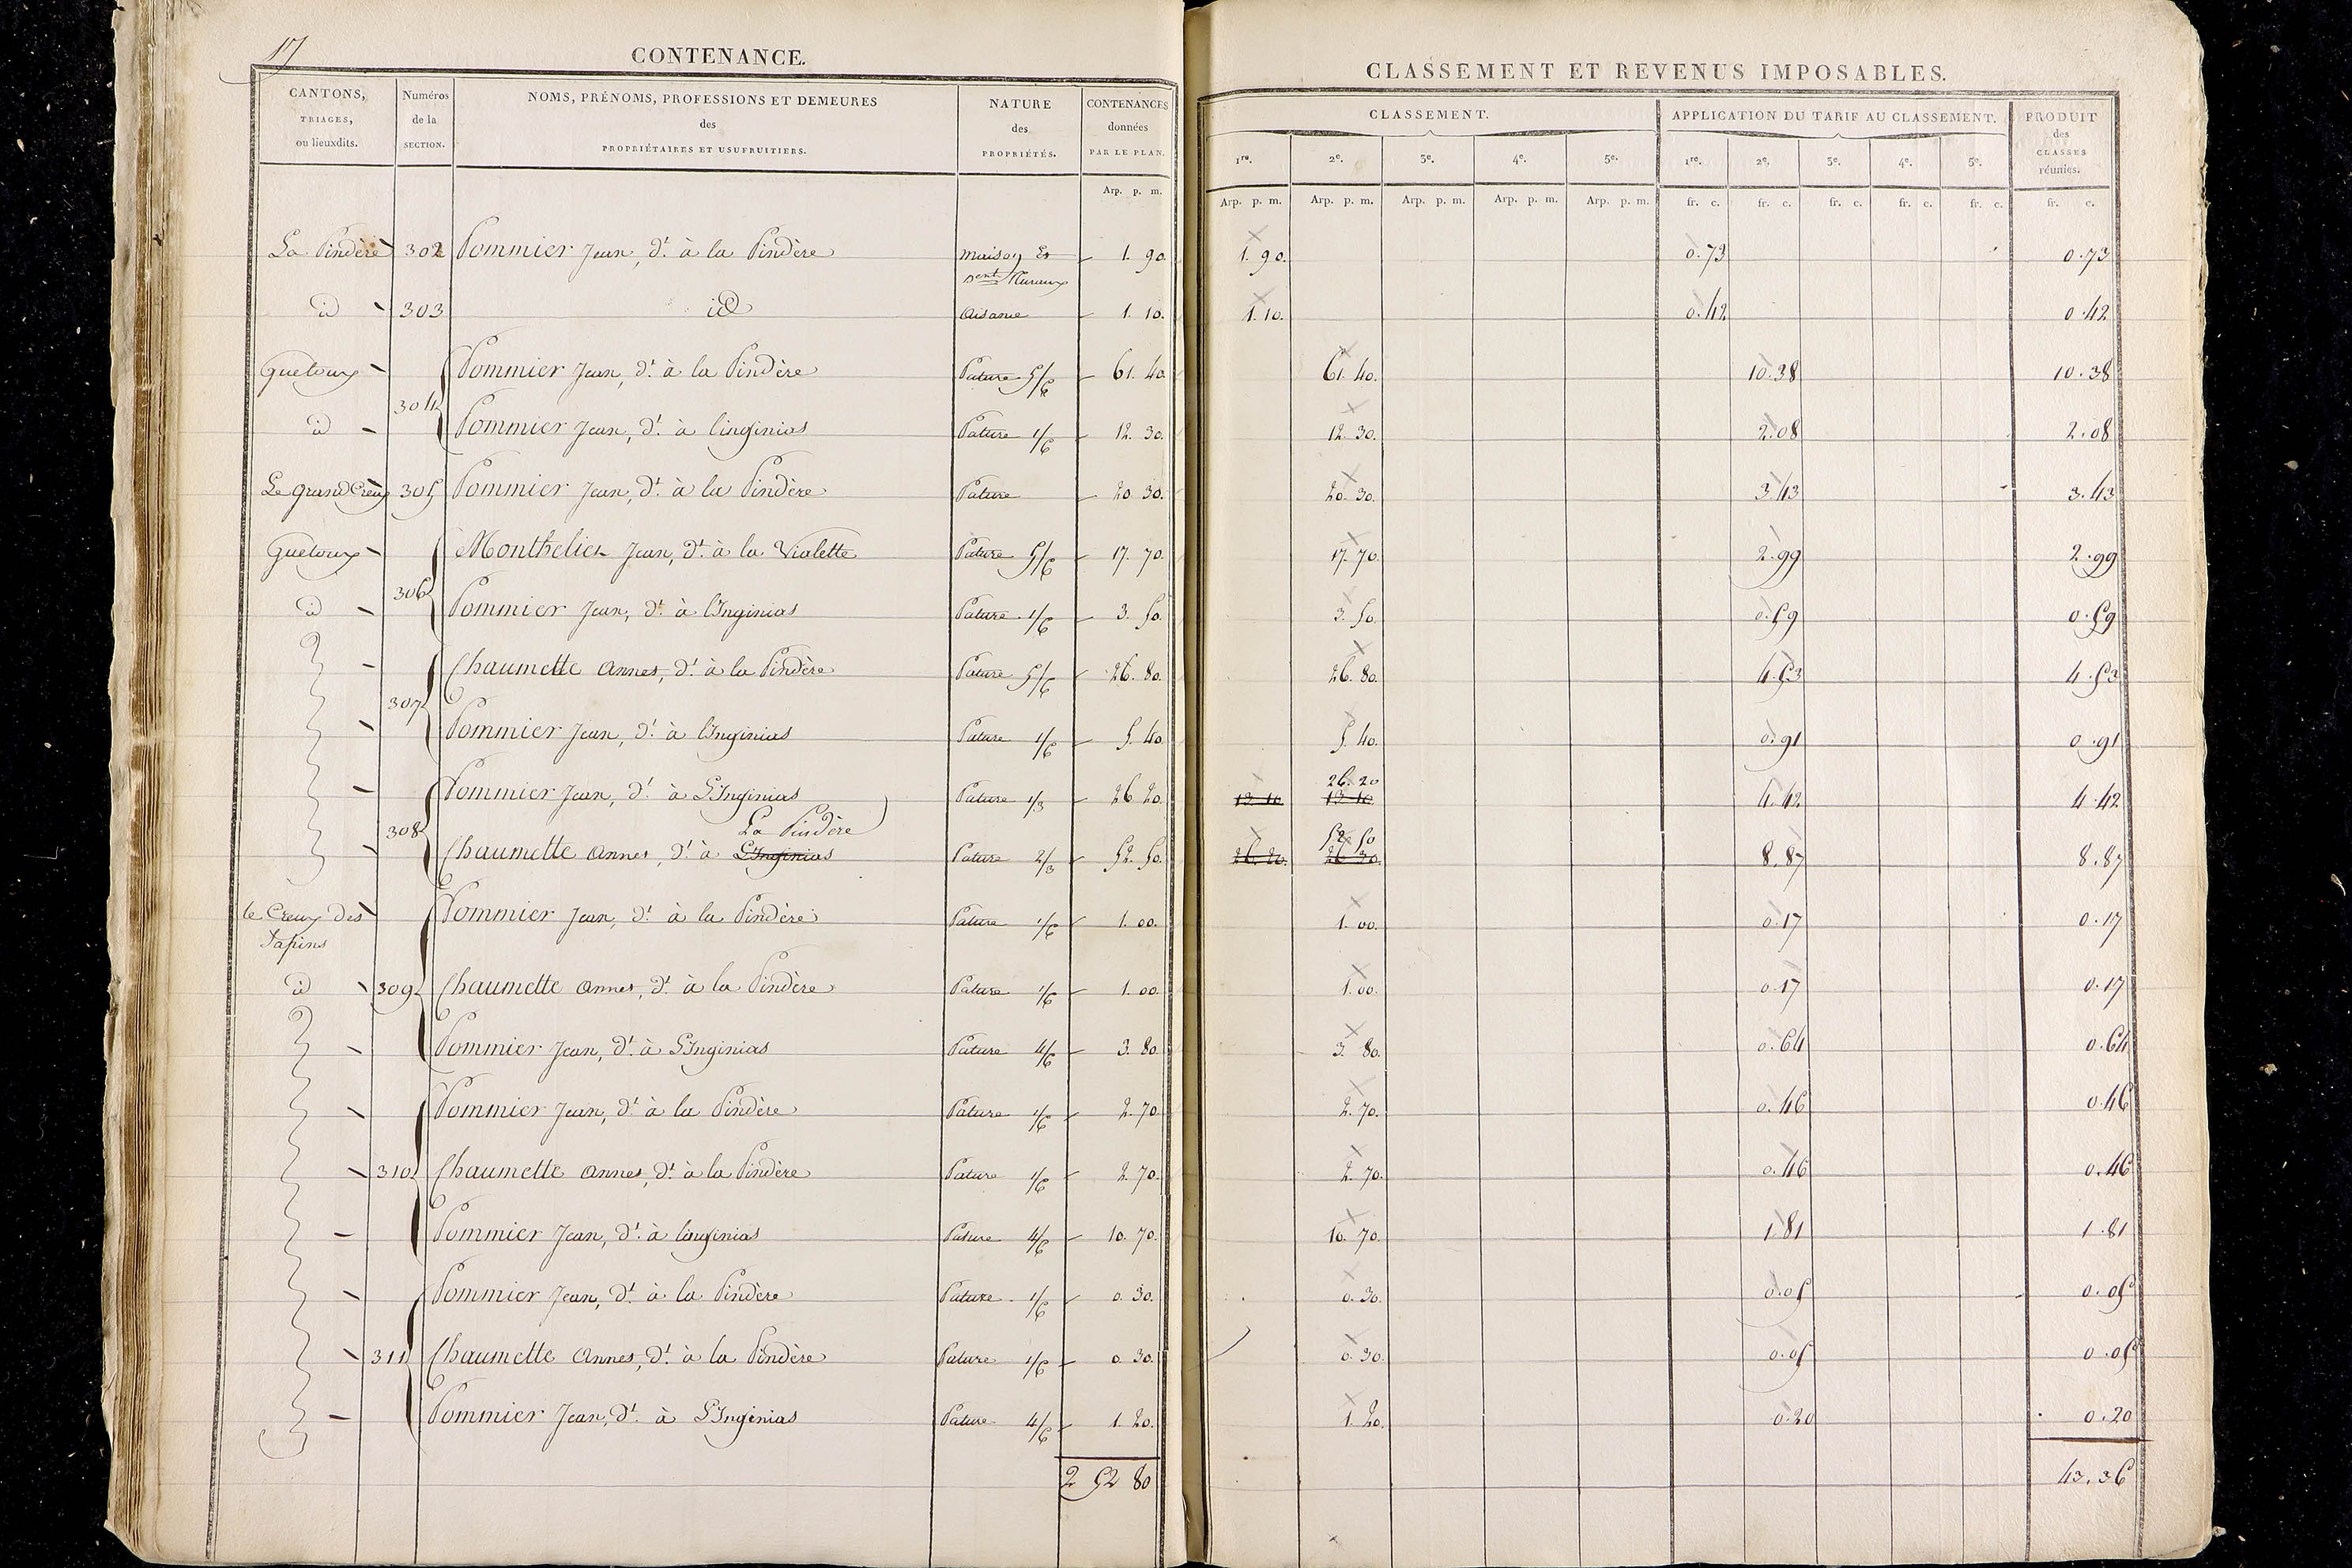 17
CONTENANCE.
CANTONS, TRIAGES, ou lieuxdits.
Numéros de la SECTION.
NOMS, PRÉNOMS, PROFESSIONS ET DEMEURES des PROPRIÉTAIRES ET USUFRUITIERS.
NATURE des PROPRIÉTÉS.
CONTENANCES données PAR LE PLAN.
Arp. p. m.
CLASSEMENT ET REVENUS IMPOSABLES.
CLASSEMENT.
APPLICATION DU TARIF AU CLASSEMENT.
PRODUIT des CLASSES réunies.
1re. 2e. 3e. 4e. 5e. 1re. 2e. 3e. 4e. 5e.
Arp. p. m. Arp. p. m. Arp. p. m. Arp. p. m. Arp. p. m. fr. c. fr. c. fr. c. fr. c. fr. c. fr. c.
La Pindère 302 Pommier Jean, dt. à la Pindère maison Et 1. 90. 1. 90. 0.73 0.73
id 303 id Aisance 1. 10. 1. 10. 0.42 0.42
Guetoux 304 Pommier Jean, dt. à la Pindère Pature 5/6 61. 40. 61. 40. 10.38 10.38
id Pommier Jean, dt. à linginias Pature 1/6 12. 30. 12. 30. 2.08 2.08
Le grand Creux 305 Pommier Jean, dt. à la Pindère Pature 20 30. 20. 30. 3.43 3.43
Guetoux 306 Monthelier Jean, dt. à la Vialette Pature 5/6 17. 70. 17. 70. 2.99 2.99
id Pommier Jean, dt. à l'Inginias Pature 1/6 3. 50. 3. 50. 0.59 0.59
307 Chaumette Annes, dt. à la Pindère Pature 5/6 26. 80. 26. 80. 4.53 4.53
Pommier Jean, dt. à l'Inginias Pature 1/6 5. 40 5. 40. 0.91 0.91
26. 20
308 Pommier Jean, dt. à L'Inginias Pature 1/3 26 20. 13 10 13 10 4.42 4.42
La Pindère 52 50
Chaumette Annes, dt. à L'Inginias Pature 2/3 52. 50. 26. 20. 26 30. 8.87 8.87
le Creux des 309 Pommier Jean, dt. à la Pindère Pature 1/6 1. 00. 1. 00. 0.17 0.17
Sapins
id Chaumette Annes, dt. à la Pindère Pature 1/6 1. 00. 1. 00. 0.17 0.17
Pommier Jean, dt. à L'Inginias Pature 4/6 3. 80. 3. 80. 0.64 0.64
310 Pommier Jean, dt. à la Pindère Pature 1/6 2. 70. 2. 70. 0.46 0.46
Chaumette Annes, dt. à la Pindère Pature 1/6 2. 70. 2. 70. 0.46 0.46
Pommier Jean, dt. à linginias Pature 4/6 10. 70. 10. 70. 1.81 1.81
311 Pommier Jean, dt. à la Pindère Pature 1/6 0. 30. 0. 30. 0.05 0.05
Chaumette Annes, dt. à la Pindère Pature 1/6 0. 30. 0. 30. 0.05 0.05
Pommier Jean, dt. à L'Inginias Pature 4/6 1. 20. 1. 20. 0.20 0.20
2 52 80 43.36